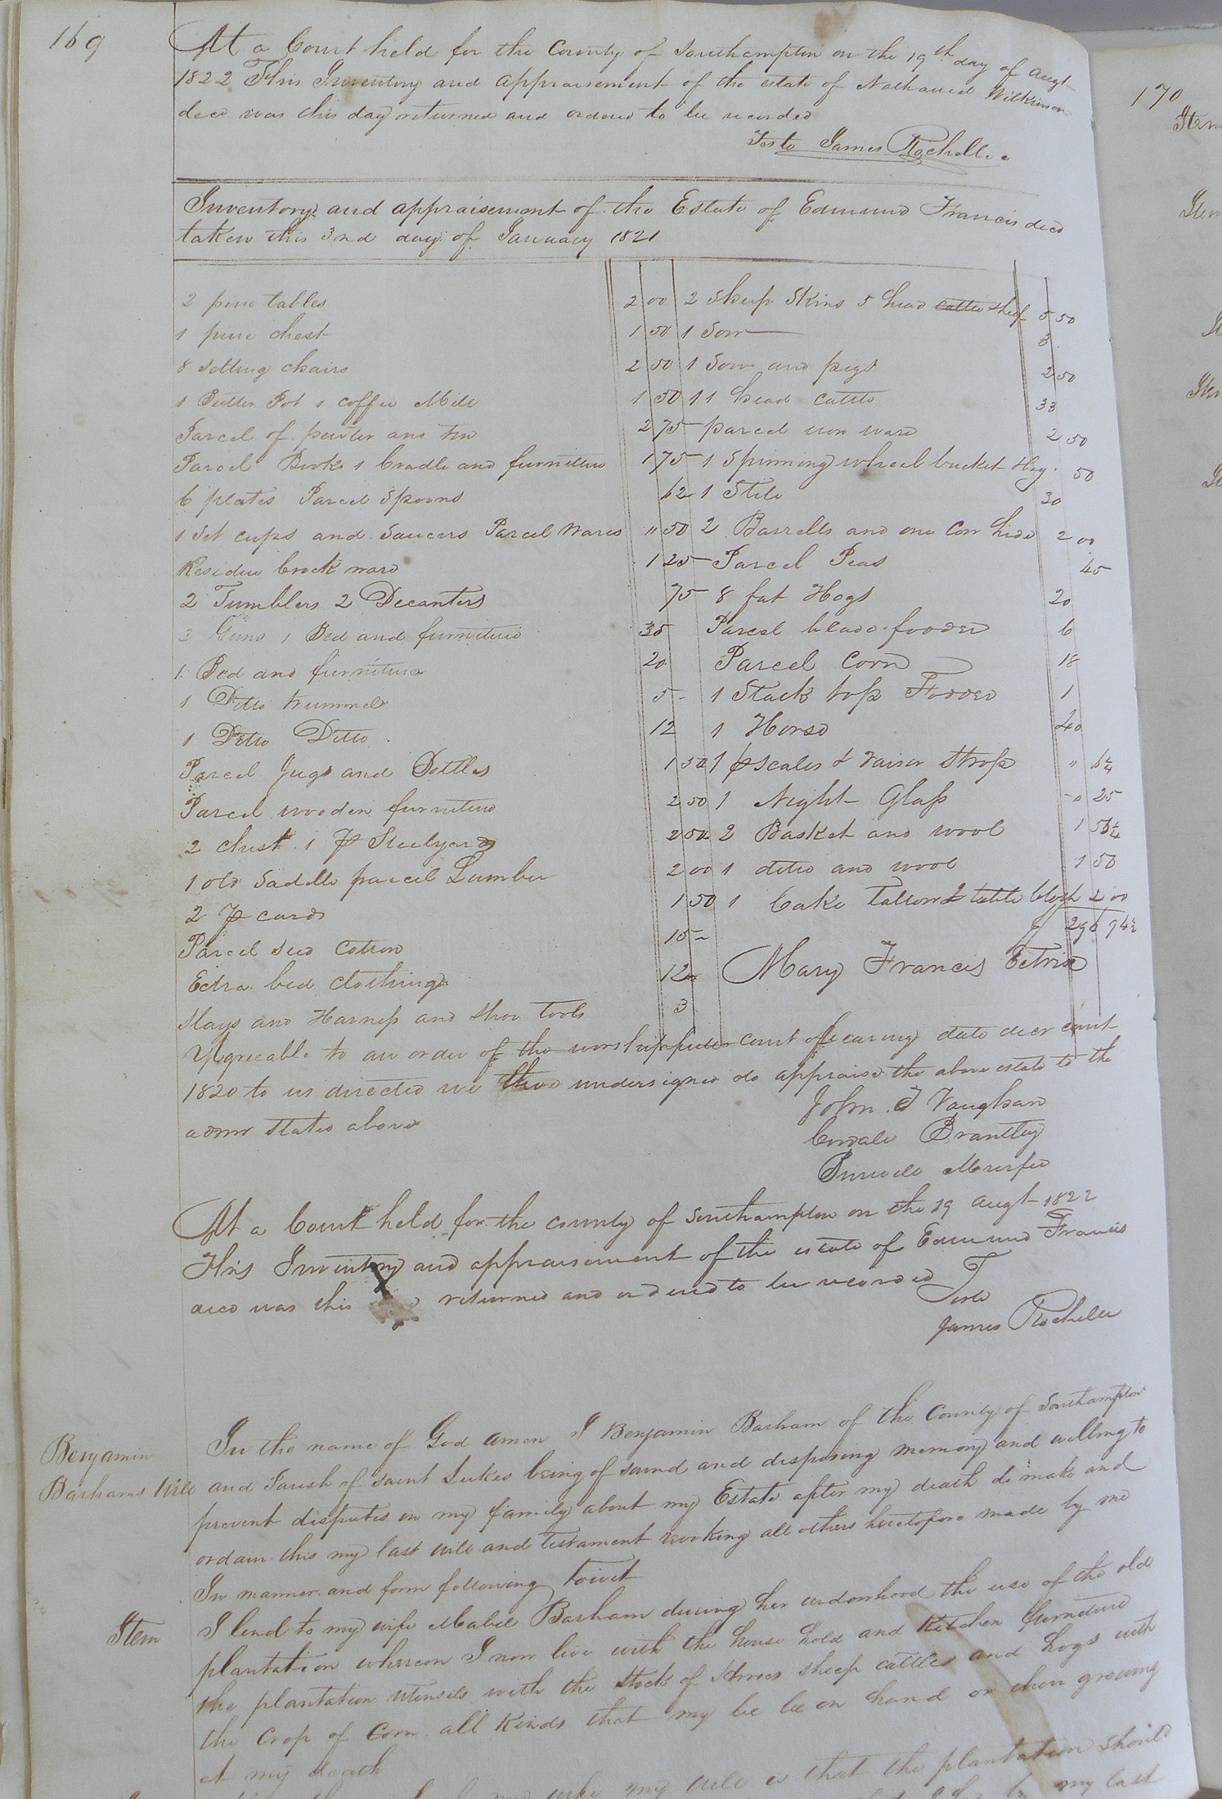 169
At a Court held for the County of Southampton on the 19th day of Augt
1822 This Inventory and appraisement of the estate of Nathaniel Wilkinson
decd was this day returned and ordered to be recorded
Teste James Rochelle
Inventory and appraisement of the Estate of Edmund Francis decd
taken this 3nd day of January 1821
2 pine tables 2 00
1 pine chest 1 50
8 setting chairs 2 50
1 Butter Pot 1 coffee Mill 1 50
Parcel of pewter and tin 2 75
Parcel Books 1 Cradle and furniture 1 75
6 plates Parcel Spoons 62
1 Set cups and Saucers Parcel Wares " 50
Residue Crock ware 1 25
2 Tumblers 2 Decanters 75
3 Guns 1 Bed and furniture 35
1 Bed and furniture 20
1 Ditto trummel 5
1 Ditto Ditto 12
Parcel Jugs and Bottles 1 50
Parcel wooden furniture 2 50
2 chest 1 pr Steelyards 2 50
1 old Saddle parcel Lumber 2 00
2 pr cards 1 50
Parcel seed cotton 15
Extra bed clothing 12
Slays and Harness and Shoe tools 3
2 Sheep Skins 5 head cattle sheep 5 50
1 Sow 3
1 Sow and pigs 2 50
11 head cattle 33
parcel iron ware 2 50
1 Spinning wheel bucket 50
1 Still 30
2 Barrells and one Cow hide 2 00
Parcel Peas 45
8 fat Hogs 20
Parcel blade fodder 6
Parcel Corn 18
1 Stack tops Fodder 1
1 Horse 40
1 pr scales & raisor Strop " 6¼
1 Night Glass " 25
2 Basket and wool 1 56¼
1 ditto and wool 1 50
1 Cake Tallow & table cloth 2 00
296 94½
Mary Francis Extrix
Agreeable to an order of the worshipful court bearing date decr court
1820 to us directed we the undersigned do appraise the above estate to the
admr stated above
John T Vaughan
Brantley
At a Court held for the county of Southampton on the 19 Augt 1822
This Inventory and appraisement of the estate of Edmund Francis
decd was this returned and ordered to be recorded
Teste
James Rochelle
Benjamin
Barhams Will
In the name of God amen I Benjamin Barham of the County of Southampton
and Parish of saint Lukes being of sound and disposing memory and willing to
prevent disputes in my family about my Estate after my death do make and
ordain this my last will and testament revoking all others heretofore made by me
In manner and form following Towit
Item
I lend to my wife Mabel Barham during her widowhood the use of the old
plantation whereon I now live with the house hold and Kitchen furniture
the plantation utensils with the Stock of Horses sheep cattles and hogs with
the Crop of Corn all kinds that my be be on hand or then growing
at my death
my will is that the plantation should
my last
170
Item
Item